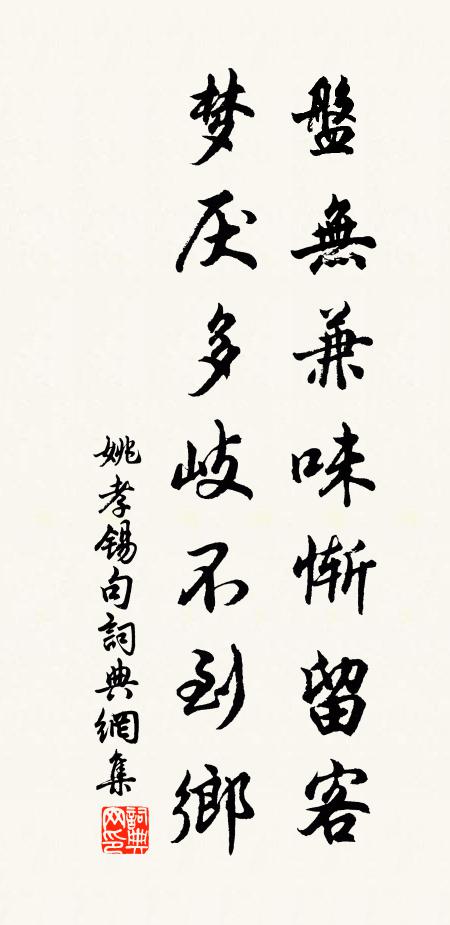 盤無兼味慚留客
梦厌多岐不到鄉
姚孝錫句詞典網集
詞典
网印